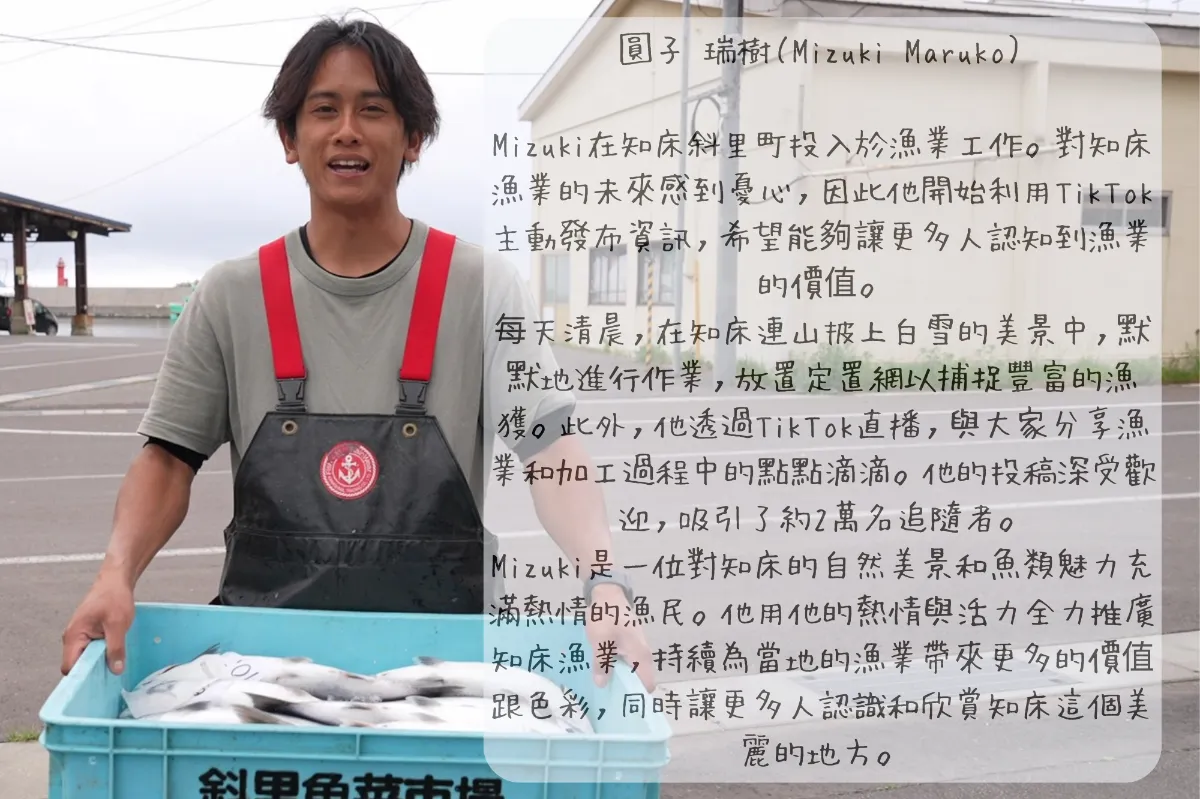 圓子 瑞樹(Mizuki Maruko)
Mizuki在知床斜里町投入於漁業工作。對知床
漁業的未來感到憂心，因此他開始利用TikTok
主動發布資訊，希望能夠讓更多人認知到漁業
的價值。
每天清晨，在知床連山披上白雪的美景中，默
默地進行作業，放置定置網以捕捉豐富的漁
獲。此外，他透過TikTok直播，與大家分享漁
業和加工過程中的點點滴滴。他的投稿深受歡
迎，吸引了約2萬名追隨者。
Mizuki是一位對知床的自然美景和魚類魅力充
滿熱情的漁民。他用他的熱情與活力全力推廣
知床漁業，持續為當地的漁業帶來更多的價值
跟色彩，同時讓更多人認識和欣賞知床這個美
麗的地方。
斜里魚菜市場